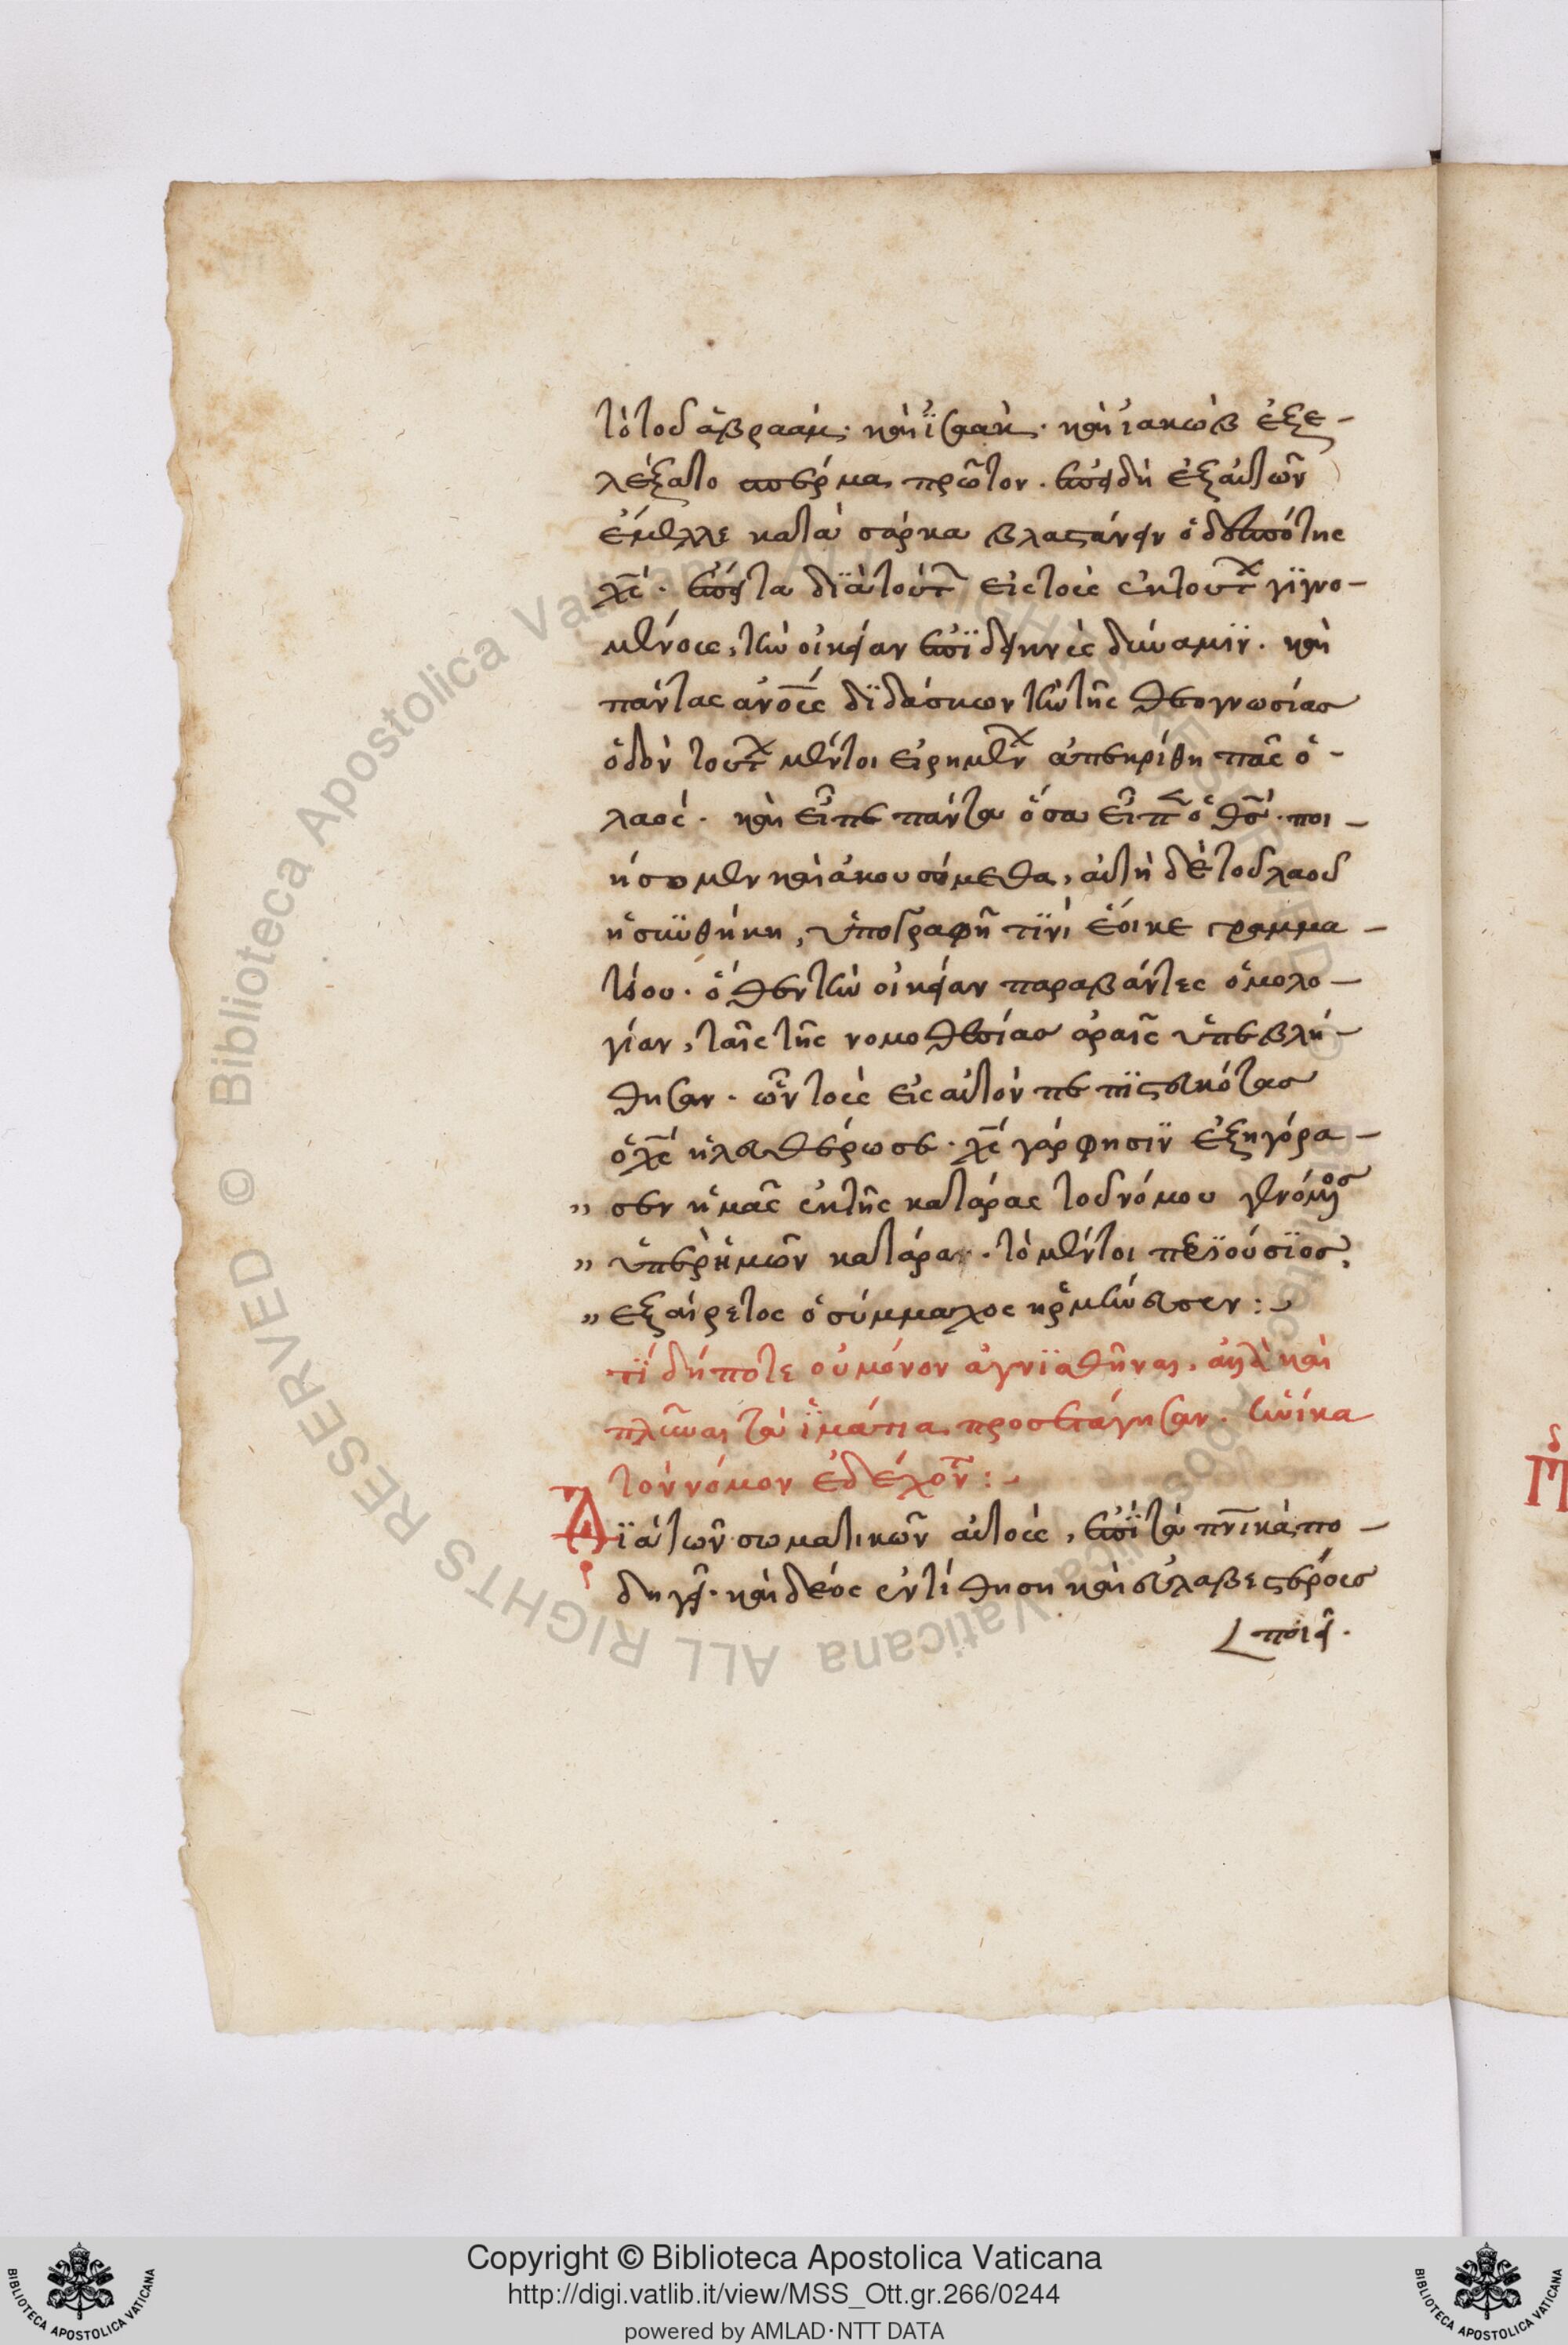 τὸ τοῦ ἀβραὰμ· καὶ ἰσαὰκ· καὶ ἰακὼβ ἐξε-
λέξατο σπέρμα πρῶτον. ἐπειδὴ ἐξ αὐτῶν
ἔμελλε κατὰ σάρκα βλαστάνειν ὁ δεσπότης
χς· ἔπειτα διὰ τούτ εἰς τοὺς ἐκ τούτ γιγνο-
μένους, τὴν οἰκείαν ἐπιδεικνὺς δύναμιν. καὶ
πάντας ἀνους διδάσκων τὴν τῆς θεογνωσίας
ὁδὸν τούτ μέντοι εἰρημέν ἀπεκρίθη πᾶς ὁ
λαὸς. καὶ εἶπε πάντα ὅσα εἶπ ὁ θς. ποι-
ήσομεν καὶ ἀκουσόμεθα, αὐτὴ δὲ τοῦ λαοῦ
ἡ συνθήκη, ὑπογραφῇ τινὶ ἔοικε γραμμα-
τείου. ὅθεν τὴν οἰκείαν παραβάντες ὁμολο-
γίαν, ταῖς τῆς νομοθεσίας ἀραῖς ὑπεβλή-
θησαν. ὧν τοὺς εἰς αὐτὸν πεπιστευκότας
ὁ χς ἠλευθέρωσε. χς γάρ φησιν ἐξηγόρα-
" σεν ἡμᾶς ἐκ τῆς κατάρας τοῦ νόμου γενόμος
" ὑπὲρ ἡμῶν κατάρα. τὸ μέντοι περιούσιος,
" ἐξαίρετος ὁ σύμμαχος ἡρμήνευσεν:
τί δήποτε οὐ μόνον ἁγνιαθῆναι, ἀλλὰ καὶ
πλῦναι τὰ ἱμάτια προσετάγησαν. ἡνίκα
τὸν νόμον ἐδέχοντ:
Διὰ τῶν σωματικῶν αὐτοὺς, ἐπὶ τὰ πνικὰ πο-
δηγεῖ. καὶ δέος ἐντίθησι καὶ εὐλαβεστέρους
ποιεῖ.
Copyright © Biblioteca Apostolica Vaticana
http://digi.vatlib.it/view/MSS_Ott.gr.266/0244
powered by AMLAD·NTT DATA
BIBLIOTECA APOSTOLICA VATICANA
BIBLIOTECA APOSTOLICA VATICANA